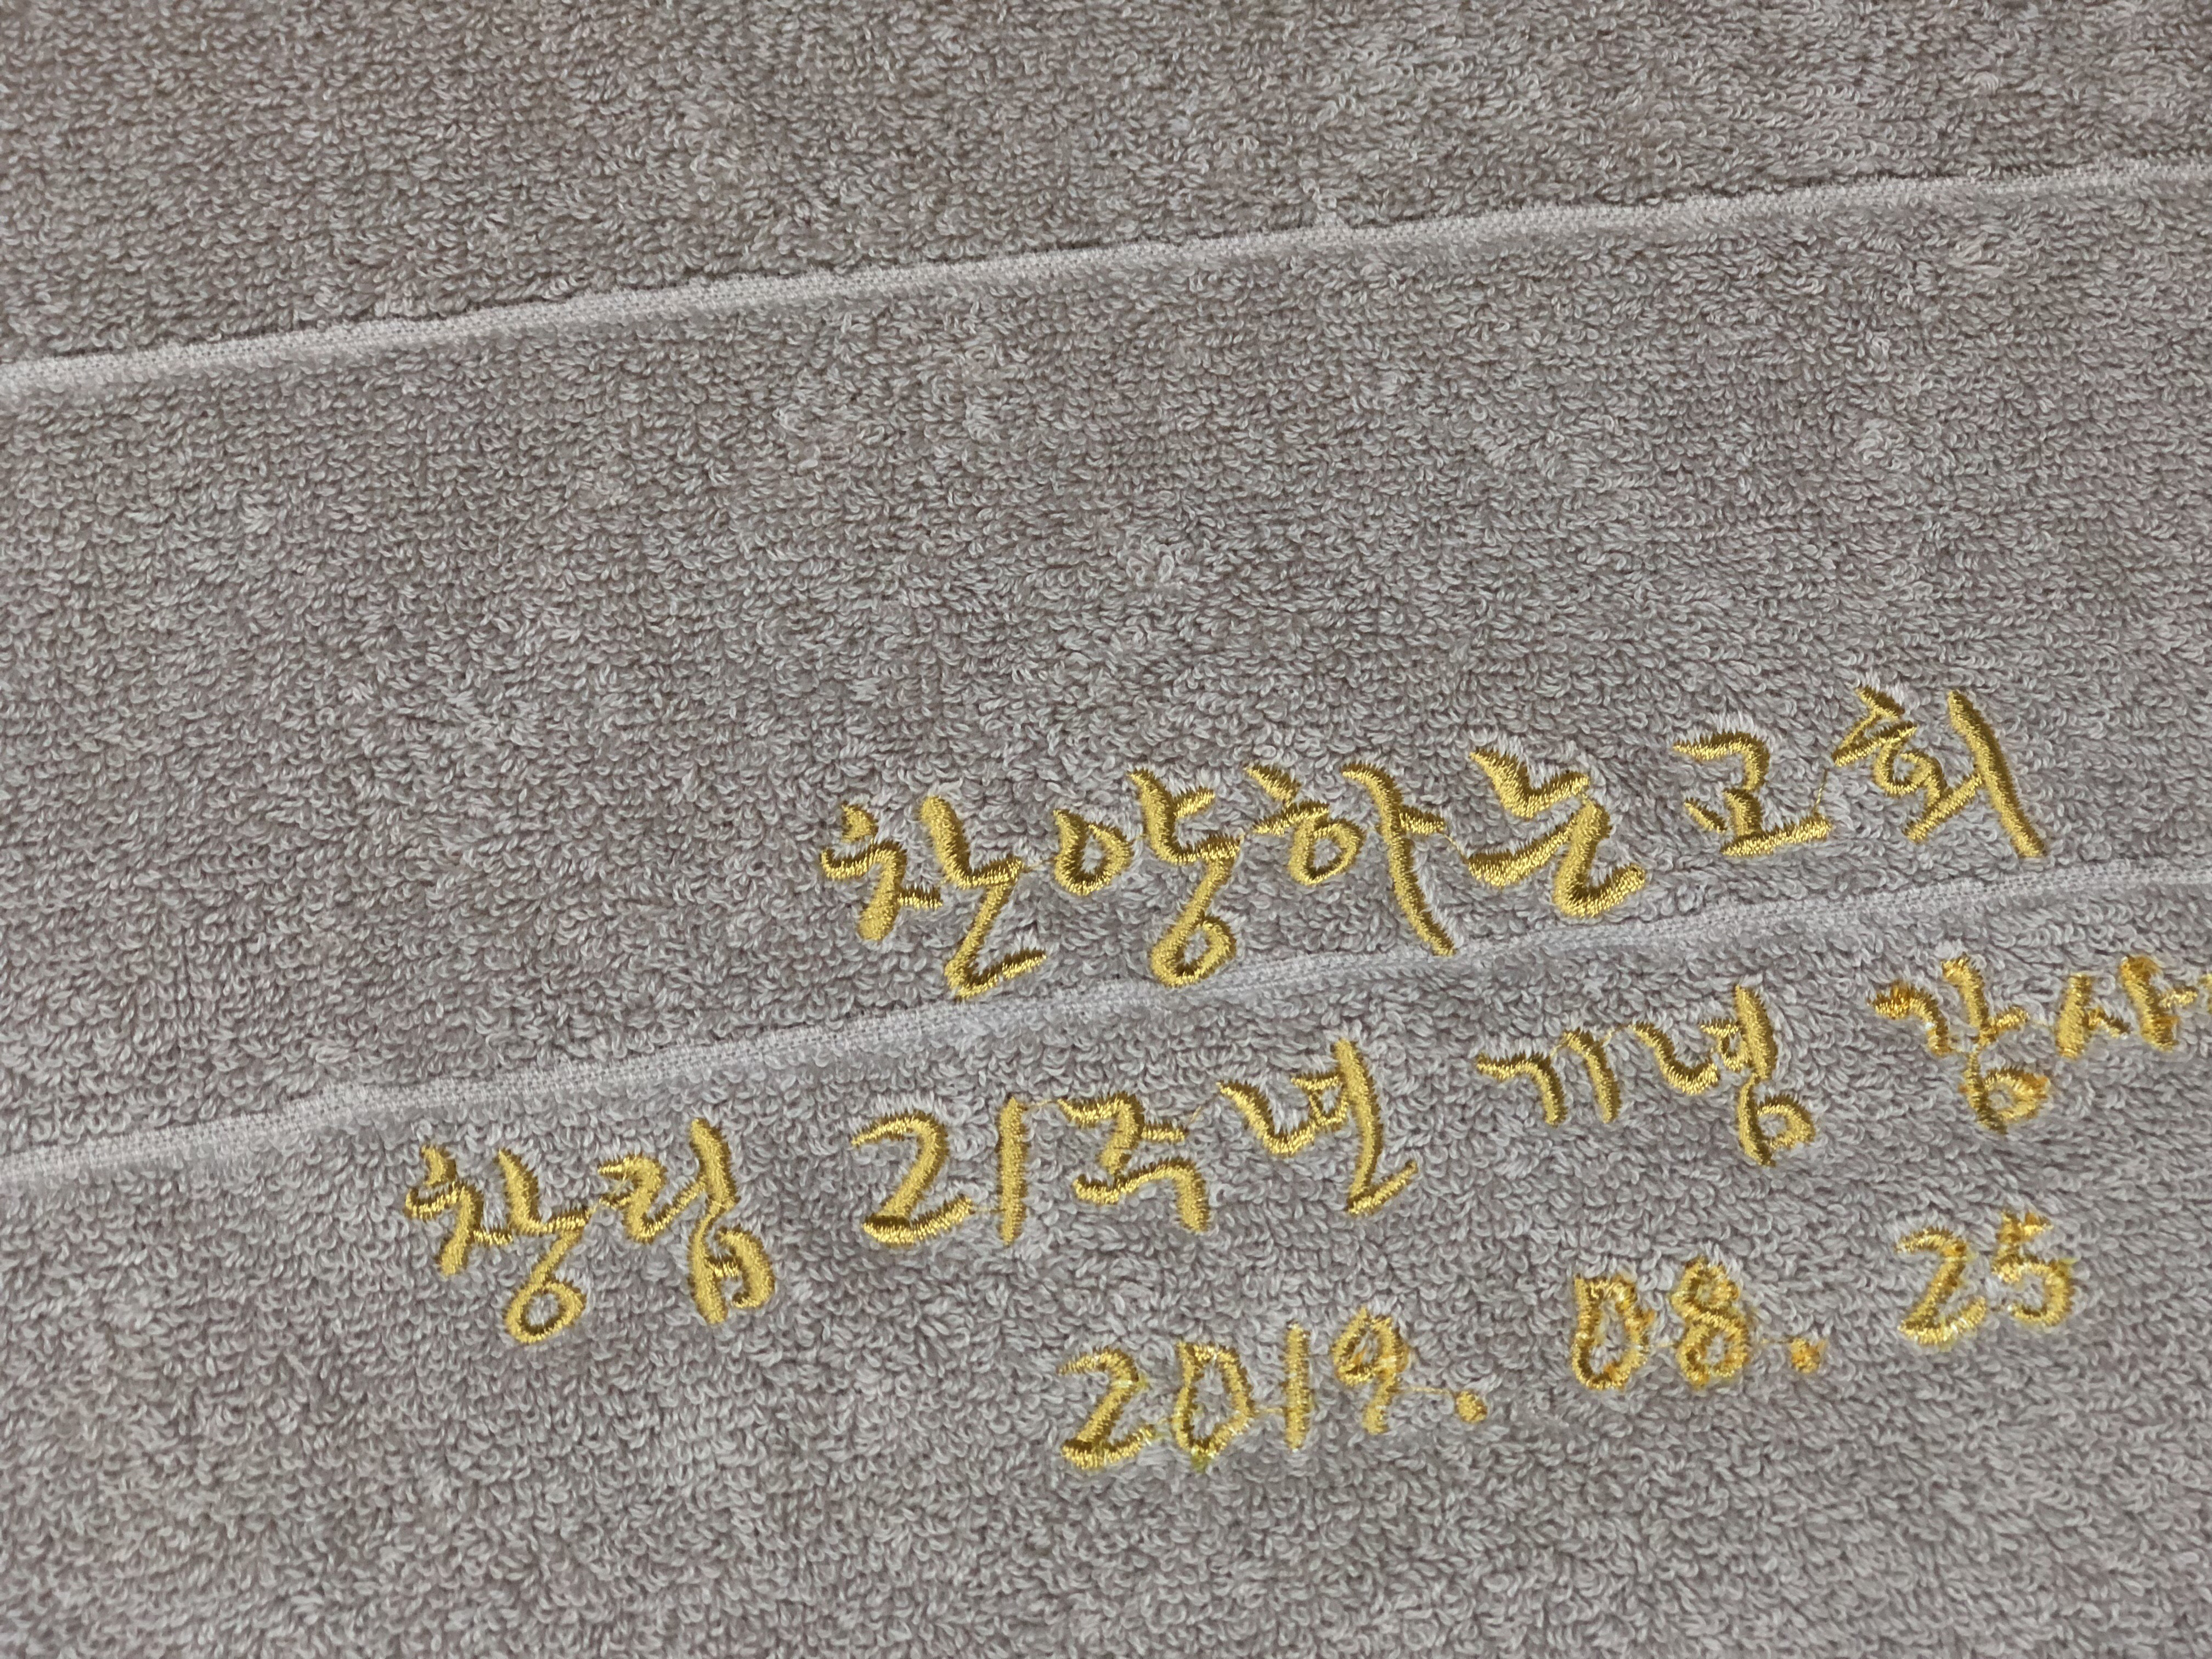 찬양하는교회
창립 21주년 기념 감사
2019. 08. 25